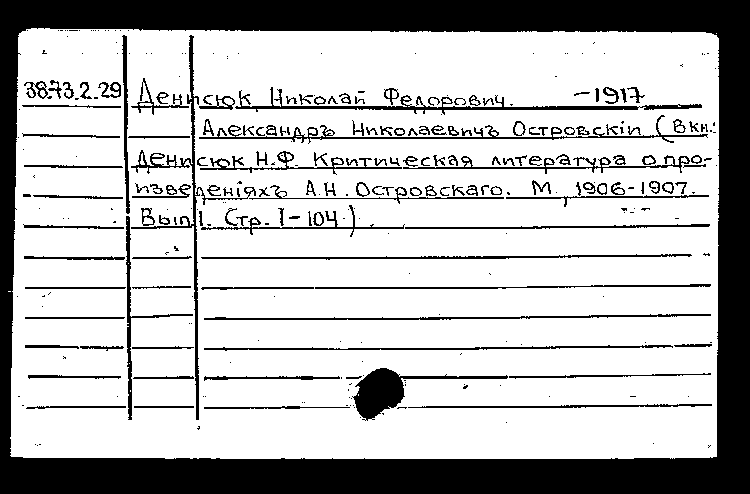 38.73.2.29 Денисюк, Николай Федорович. -1917
Александръ Николаевичъ Островскiи (В кн.:
Денисюк, Н.Ф. Критическая литература о про-
изведенiяхъ А.Н. Островскаго. М., 1906-1907.
Вып.I. Стр. I-104.)